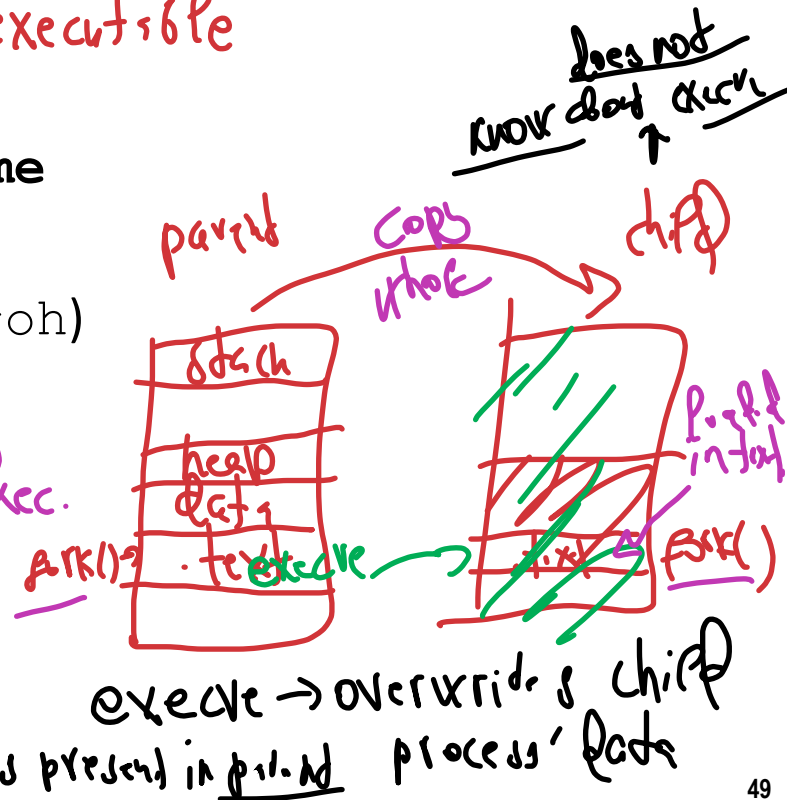 executable
does not
know about execve
me
parent
copy
whole
child
oh)
stack
heap
data
.text
fork()→
execve
text
fork()
xec.
execve → overwrides child
s present in parent
process' data
49